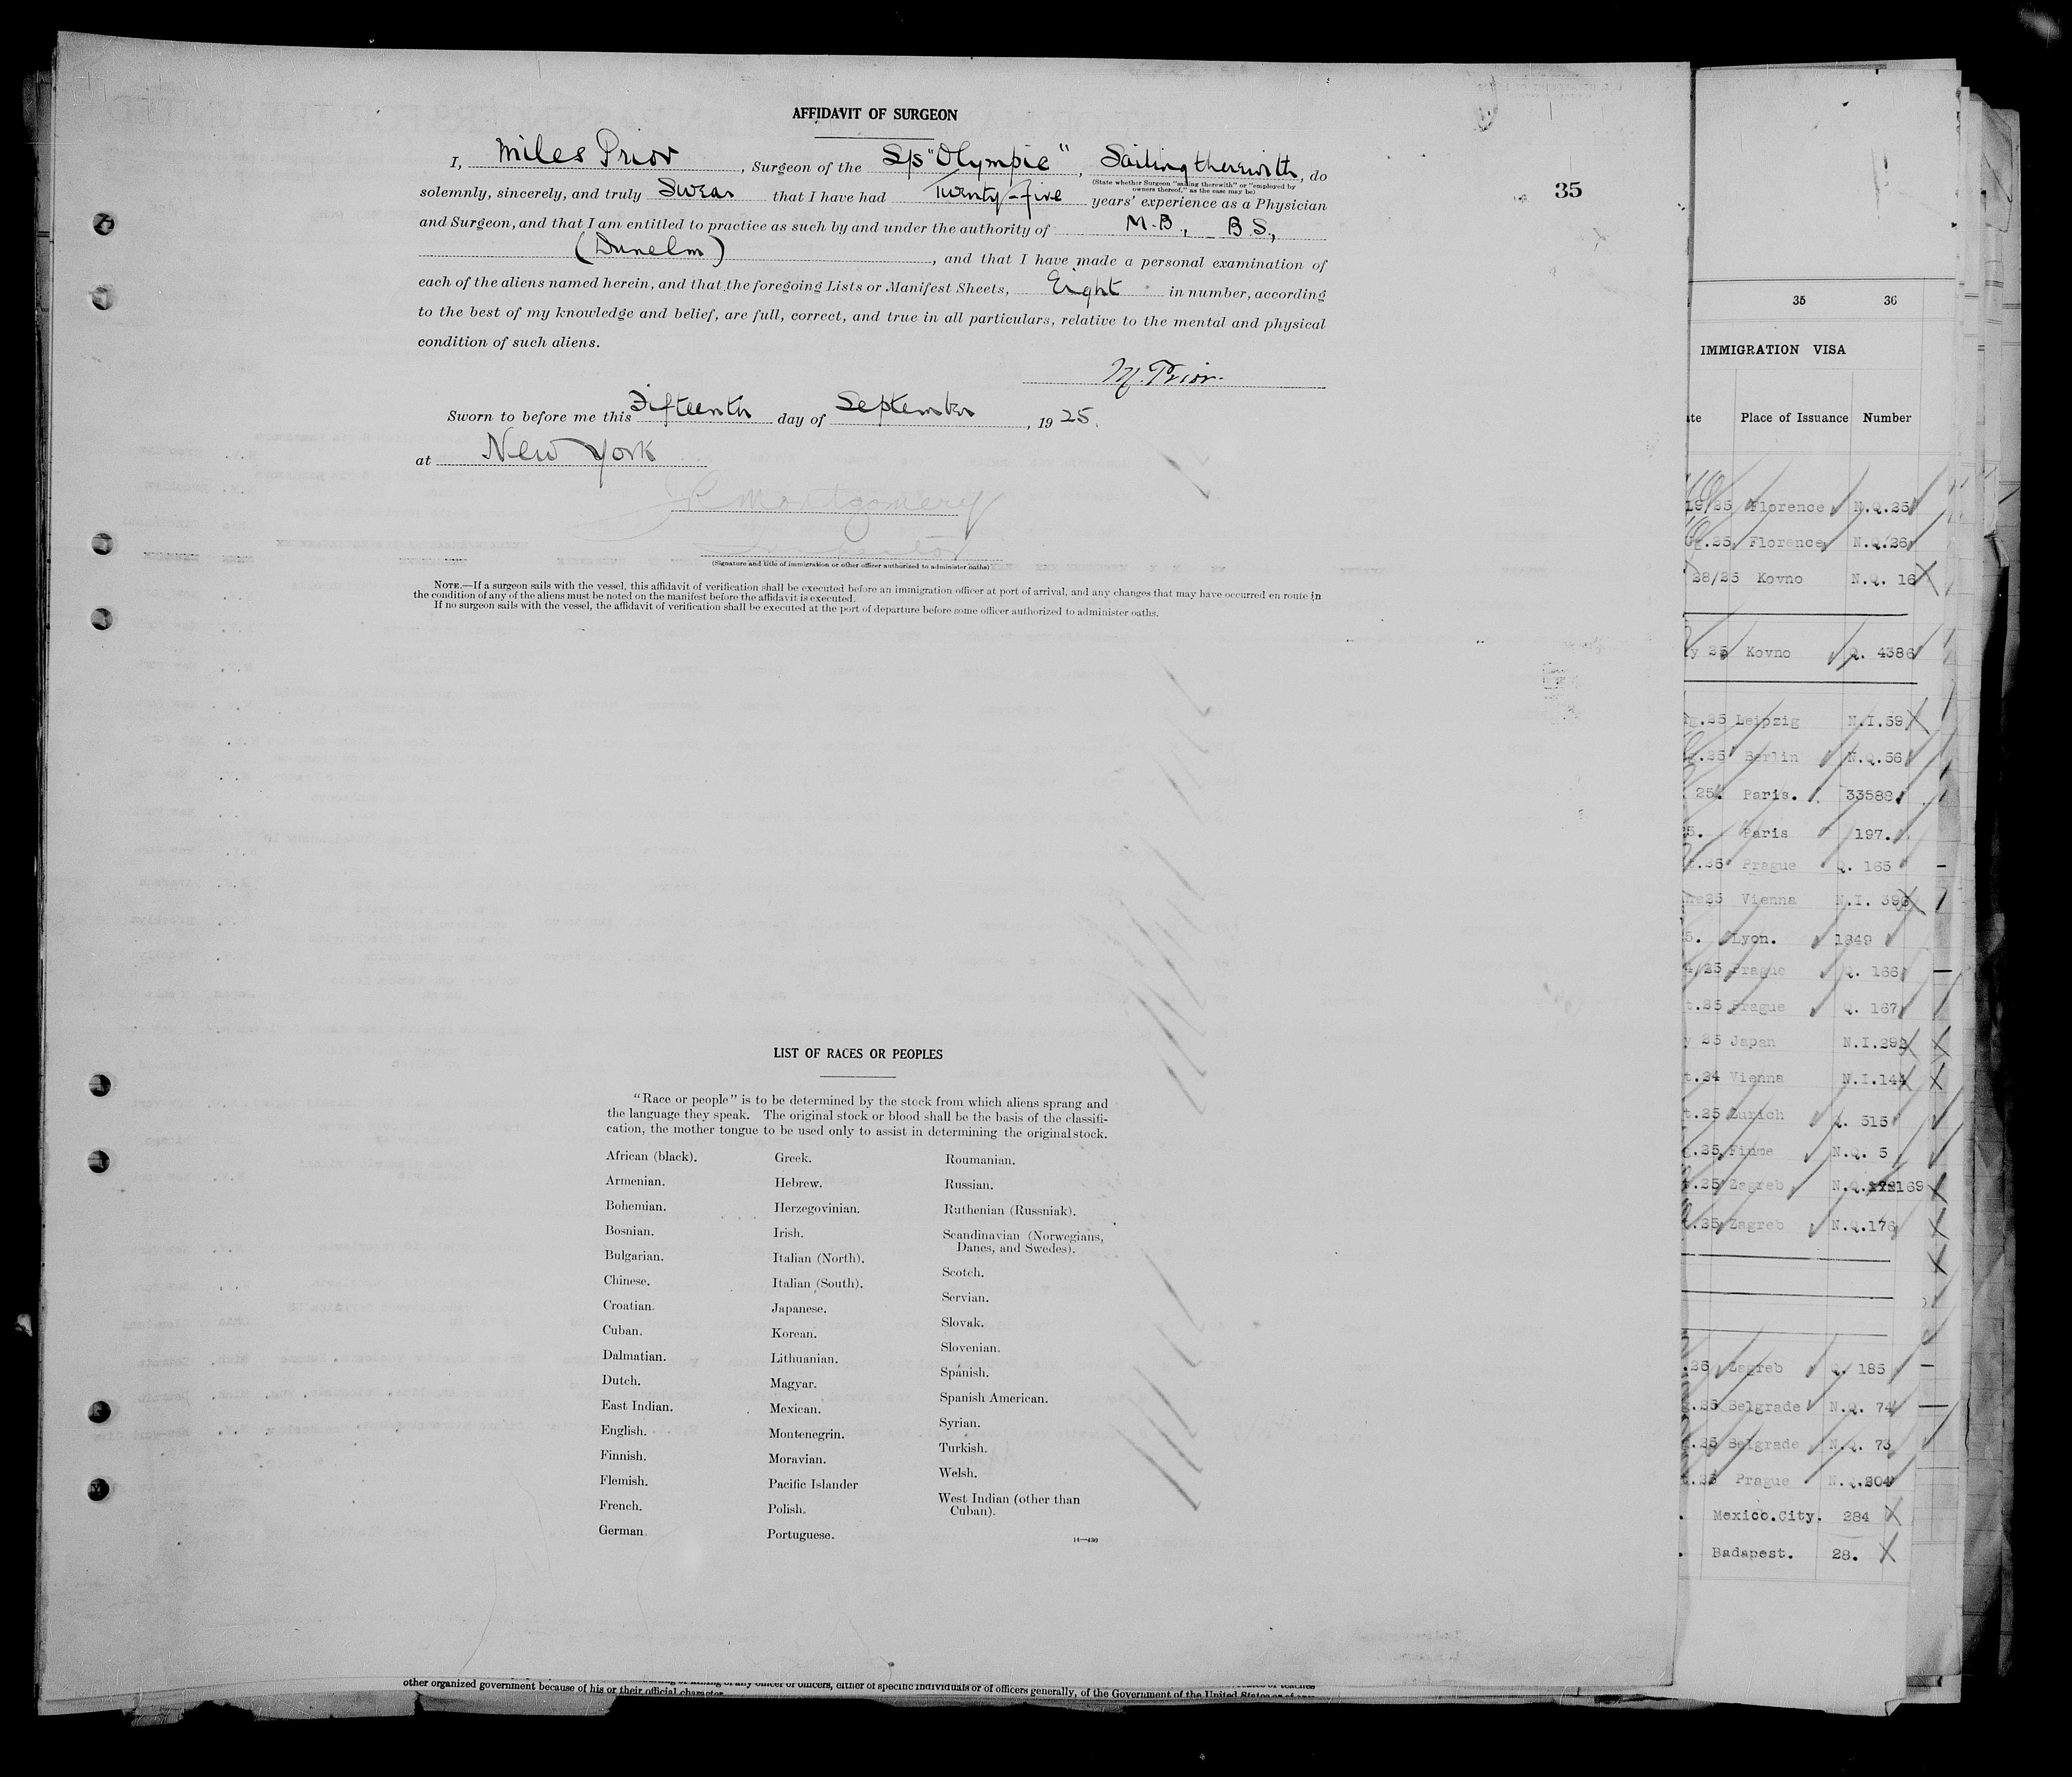 AFFIDAVIT OF SURGEON
I, Miles Prior, Surgeon of the S/s "Olympic", Sailing therewith, do
(State whether Surgeon "sailing therewith" or "employed by
owners thereof," as the case may be)
35
solemnly, sincerely, and truly Swear that I have had Twenty-five years' experience as a Physician
and Surgeon, and that I am entitled to practice as such by and under the authority of M.B., B.S.,
(Dunelm), and that I have made a personal examination of
each of the aliens named herein, and that the foregoing Lists or Manifest Sheets, Eight in number, according
to the best of my knowledge and belief, are full, correct, and true in all particulars, relative to the mental and physical
condition of such aliens.
M. Prior.
Sworn to before me this Fifteenth day of September, 1925.
at New York
Montgomery
(Signature and title of immigration or other officer authorized to administer oaths)
NOTE.—If a surgeon sails with the vessel, this affidavit of verification shall be executed before an immigration officer at port of arrival, and any changes that may have occurred en route in
the condition of any of the aliens must be noted on the manifest before the affidavit is executed.
If no surgeon sails with the vessel, the affidavit of verification shall be executed at the port of departure before some officer authorized to administer oaths.
LIST OF RACES OR PEOPLES
"Race or people" is to be determined by the stock from which aliens sprang and
the language they speak. The original stock or blood shall be the basis of the classifi-
cation, the mother tongue to be used only to assist in determining the original stock.
African (black).
Armenian.
Bohemian.
Bosnian.
Bulgarian.
Chinese.
Croatian.
Cuban.
Dalmatian.
Dutch.
East Indian.
English.
Finnish.
Flemish.
French.
German.
Greek.
Hebrew.
Herzegovinian.
Irish.
Italian (North).
Italian (South).
Japanese.
Korean.
Lithuanian.
Magyar.
Mexican.
Montenegrin.
Moravian.
Pacific Islander
Polish.
Portuguese.
Roumanian.
Russian.
Ruthenian (Russniak).
Scandinavian (Norwegians,
Danes, and Swedes).
Scotch.
Servian.
Slovak.
Slovenian.
Spanish.
Spanish American.
Syrian.
Turkish.
Welsh.
West Indian (other than
Cuban).
14—430
other organized government because of his or their official character
of any officer or officers, either of specific individuals or of officers generally, of the Government of the United States or of any
35 36
IMMIGRATION VISA
Place of Issuance Number
19/25 Florence N.Q.25
.25 Florence N.Q.26
28/25 Kovno N.Q. 16
y 25 Kovno Q. 4386
g.25 Leipzig N.I.59
.25 Berlin N.Q.56
25. Paris. 33588
5. Paris 197.
.25 Prague Q. 165
25 Vienna N.I. 396
5. Lyon. 1849
/25 Prague Q. 166
t.25 Prague Q. 167
y 25 Japan N.I.293
t.24 Vienna N.I.144
t.25 Zurich Q. 515
.25 Fiume N.Q. 5
.25 Zagreb N.Q. 169
.25 Zagreb N.Q.176
.25 Zagreb Q. 185
.25 Belgrade N.Q. 74
.25 Belgrade N.Q. 73
t.25 Prague N.Q.204
Mexico.City. 284
Badapest. 28.